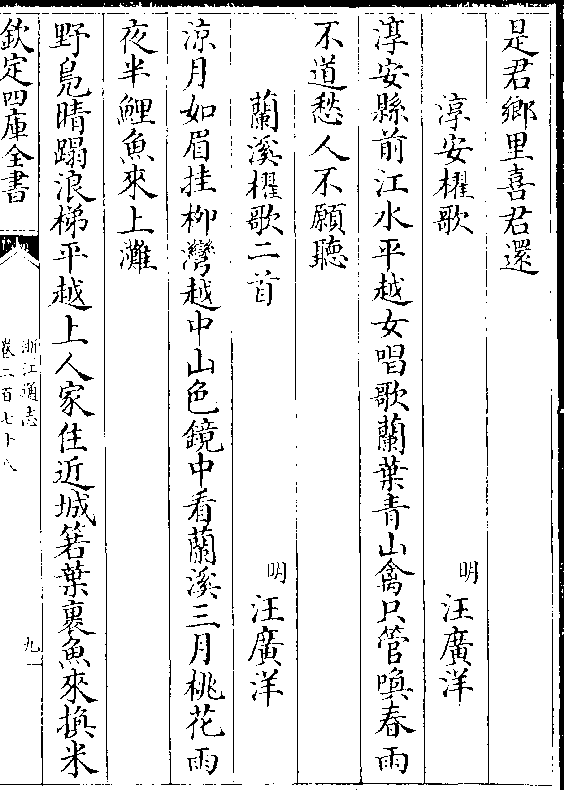 是君鄉里喜君還
淳安櫂歌 明 汪廣洋
淳安縣前江水平越女唱歌蘭葉青山禽只管喚春雨
不道愁人不願聽
蘭溪櫂歌二首 明 汪廣洋
涼月如眉挂柳灣越中山色鏡中看蘭溪三月桃花雨
夜半鯉魚來上灘
野鳧晴蹋浪梯平越上人家住近城箬葉裹魚來換米
欽定四庫全書
浙江通志
卷二百七十八
九